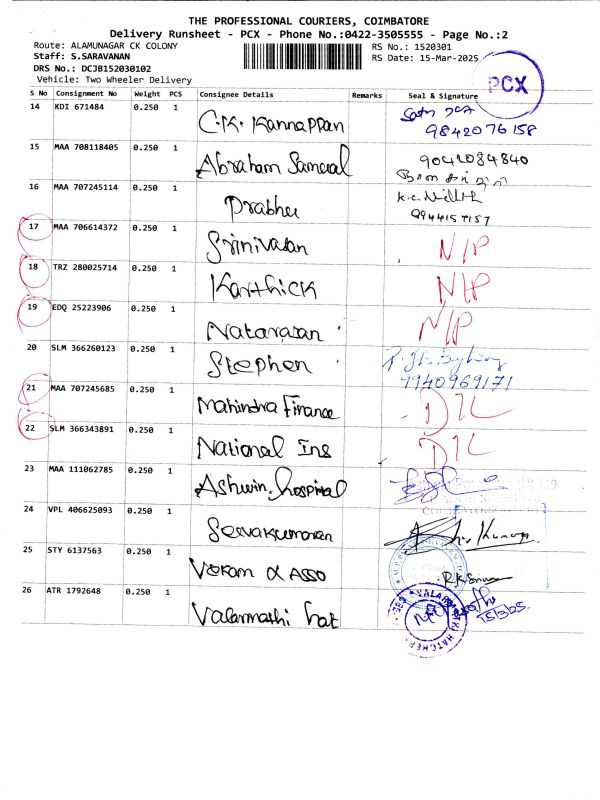 THE PROFESSIONAL COURIERS, COIMBATORE
Delivery Runsheet - PCX - Phone No.:0422-3505555 - Page No.:2
Route: ALAMUNAGAR CK COLONY
RS No.: 1520301
Staff: S.SARAVANAN
RS Date: 15-Mar-2025
DRS No.: DCJB152030102
Vehicle: Two Wheeler Delivery
PCX
S No Consignment No Weight PCS Consignee Details Remarks Seal & Signature
14 KDI 671484 0.250 1 C.K. Kannappan
9842076158
15 MAA 708118405 0.250 1 Abraham Samuval 9042084840
16 MAA 707245114 0.250 1 Prabhu
9944157157
17 MAA 706614372 0.250 1 Srinivasan N/P
18 TRZ 280025714 0.250 1 Karthick N/P
19 EDQ 25223906 0.250 1 Natarasan N/P
20 SLM 366260123 0.250 1 Stephen
9940969171
21 MAA 707245685 0.250 1 Mahindra Finance D/L
22 SLM 366343891 0.250 1 National Ins D/L
23 MAA 111062785 0.250 1 Ashwin.hospital
24 VPL 406625093 0.250 1 Selvakumaran
25 STY 6137563 0.250 1 Vikram & Asso
26 ATR 1792648 0.250 1 Valarmathi hat
VALARMATHI HATCHERY